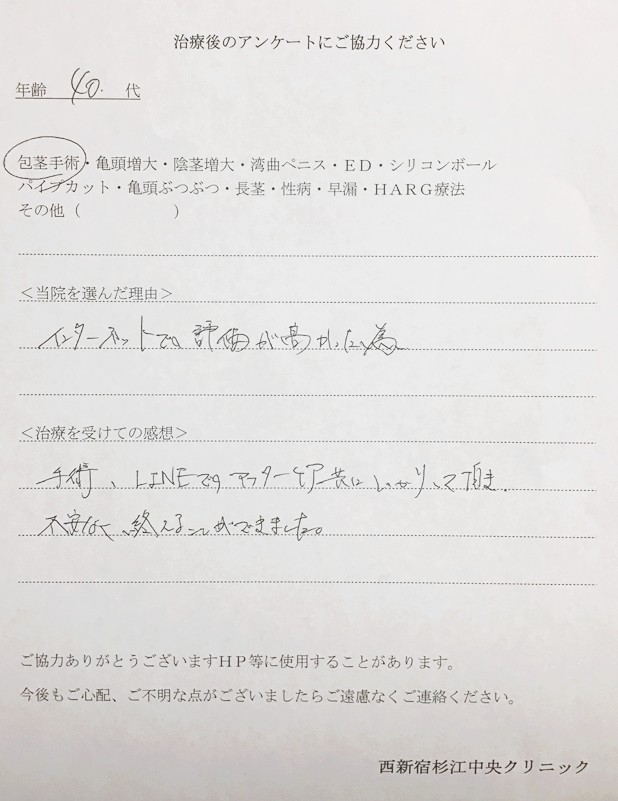 治療後のアンケートにご協力ください
年齢 40. 代
包茎手術・亀頭増大・陰茎増大・湾曲ペニス・ED・シリコンボール
パイプカット・亀頭ぶつぶつ・長茎・性病・早漏・HARG療法
その他（ ）
＜当院を選んだ理由＞
インターネットでの評価が高かった為
＜治療を受けての感想＞
手術、LINEでのアフターケア共にしっかりして頂き、
不安なく終えることができました。
ご協力ありがとうございますHP等に使用することがあります。
今後もご心配、ご不明な点がございましたらご遠慮なくご連絡ください。
西新宿杉江中央クリニック